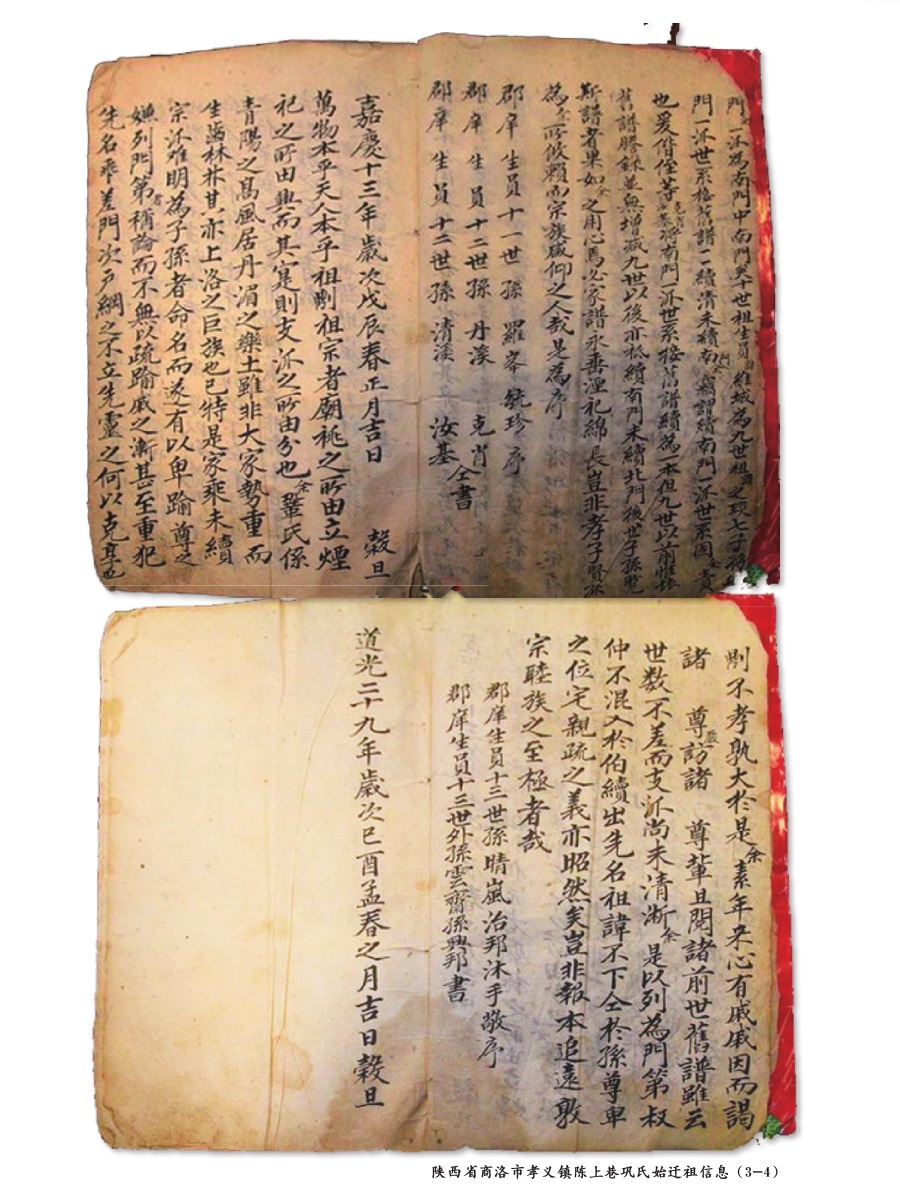 門一派為南門中南門矣十世祖生員維城為九世祖之現七子將
門一派世系按舊譜一續清未續南
也爰偕侄等將南門一派世系按舊譜續為一本但九世以前惟據
舊譜謄錄並無增減九世以後亦祗續南門未續北門後世子孫覽
斯譜者果如余之用心焉必家譜永垂湮祀綿長豈非孝子賢孫
為所攸賴而宗族咸仰之人哉是為序
郡庠生員十一世孫羅峯毓珍序
郡庠生員十二世孫丹溪克肖
郡庠生員十二世孫清溪汝基仝書
嘉慶十三年歲次戊辰春正月吉日 穀旦
萬物本乎天人本乎祖剙祖宗者廟祧之所由立煙
祀之所由興而其寔則支派之所由分也余鞏氏係
青陽之高風居丹湄之樂土雖非大家勢重而
生齒林林甚亦上洛之巨族也已特是家乘未續
宗派难明為子孫者命名而遂有以卑踰尊之
嫌列門第者稱論而不無以疏踰戚之漸甚至重犯
先名乖差門次户綱之不立先靈之何以克享也
剙不孝孰大於是余素年来心有戚戚因而謁
諸 尊嚴訪諸 尊輩且閱諸前世舊譜雖云
世数不差而支派尚未清淅余是以列為門第叔
仲不混入於伯續出先名祖諱不下仝於孫尊卑
之位宅親疏之義亦昭然矣豈非報本追遠敦
宗睦族之至極者哉
郡庠生員十三世孫晴嵐治邦沐手敬序
郡庠生員十三世外孫雲齋孫興邦書
道光二十九年歲次己酉孟春之月吉日穀旦
陕西省商洛市孝义镇陈上巷巩氏始迁祖信息（3-4）